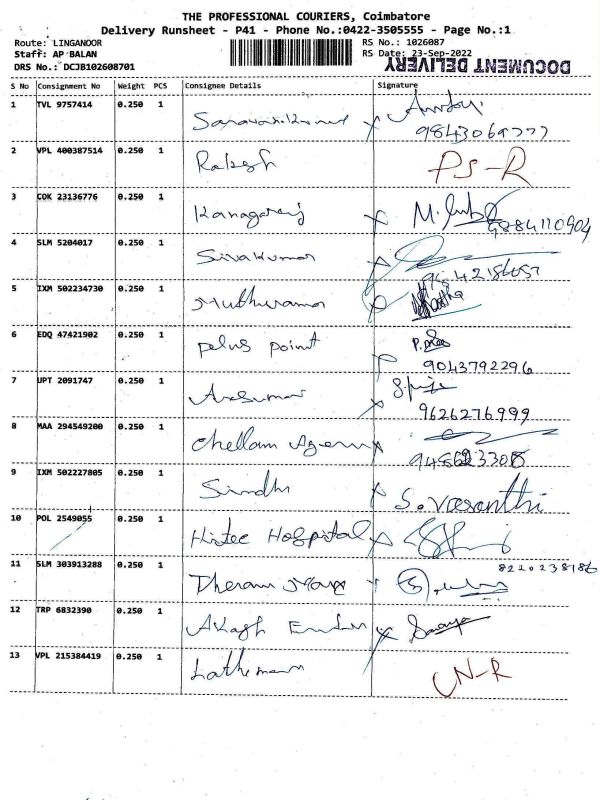 THE PROFESSIONAL COURIERS, Coimbatore
Delivery Runsheet - P41 - Phone No.:0422-3505555 - Page No.:1
Route: LINGANOOR RS No.: 1026087
Staff: AP BALAN RS Date: 23-Sep-2022
DRS No.: DCJB102608701 DOCUMENT DELIVERY
S No Consignment No Weight PCS Consignee Details Signature
1 TVL 9757414 0.250 1
2 VPL 400387514 0.250 1 Rakesh PS-R
3 COK 23136776 0.250 1 Kanagaraj 9884110904
4 SLM 5204017 0.250 1 Sivakumar
5 IXM 502234730 0.250 1
6 EDQ 47421902 0.250 1 pelus point
9043792296
7 UPT 2091747 0.250 1
9626276999
8 MAA 294549200 0.250 1 Chellam
9 IXM 502227805 0.250 1 Sindhi S. Vasanthi
10 POL 2549055 0.250 1 Hitec Hospital
11 SLM 303913288 0.250 1 8220238186
12 TRP 6832390 0.250 1 Akash
13 VPL 215384419 0.250 1 CN-R